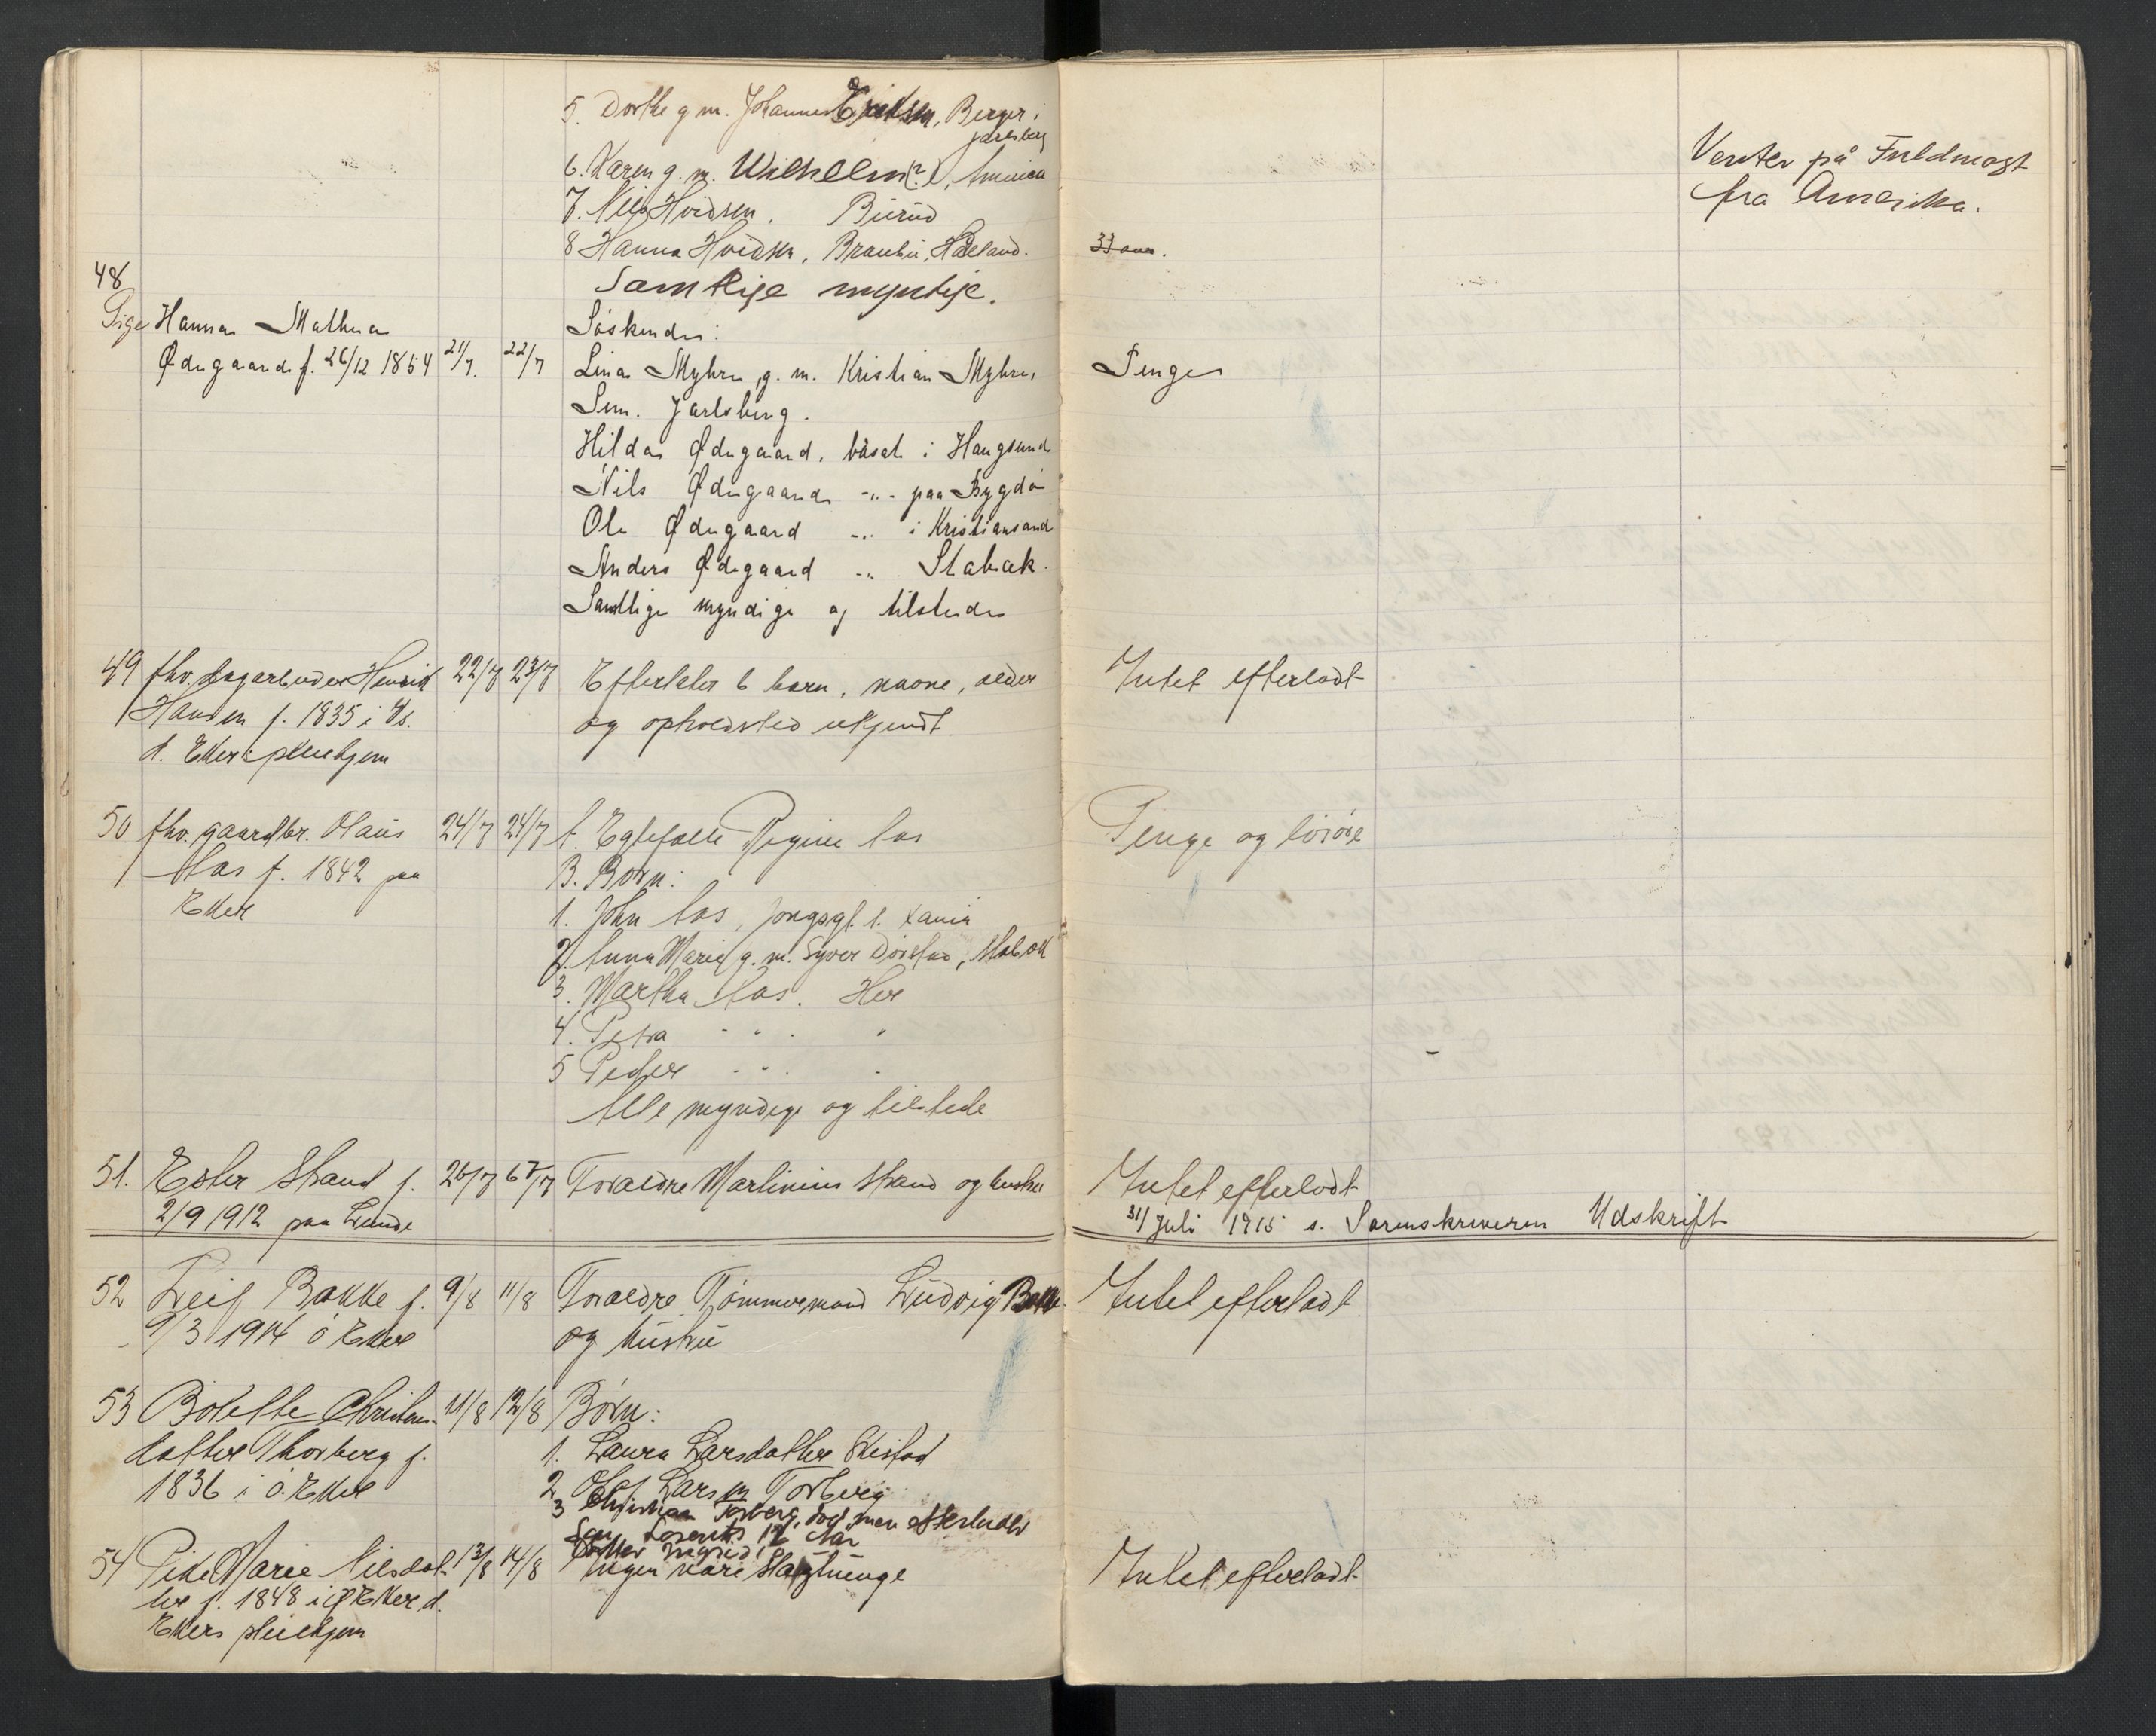 5. Dorthe g. m. Johannes Eriksen, Berger i
Jarlsberg
6. Karen g. m. Wilhelm (?), America
Venter på Fuldmagt
fra Amerika.
7. Nils Hvidsen. Burud
8 Hanna Hvidsen, Brandbu, Hadeland.
33 aar.
Samtlige myndige.
48
Pige Hanna Mathea
Ødegaard f. 26/12 1854 21/7. 22/7
Söskende:
Lina Myhre, g. m. Kristian Myhre,
Penge
Sem. Jarlsberg.
Hilda Ødegaard, bosat i Haugsund
Nils Ødegaard -"- paa Bygdö
Ole Ødegaard -"- i Kristiansand
Anders Ødegaard -"- Stabæk.
Samtlige myndige og tilstede
49 fhv. sagarbeider Henrik 22/7 23/7 Efterlater 6 barn, navne, alder
Intet efterladt
Hansen f. 1835 i
og opholdsted ukjendt
d. Ekers pleiehjem
50 fhv. gaardbr. Olaus 24/7 24/7 A. Egtefælle Regine Aas
Penge og lösöre
Aas f. 1842 paa
B. Börn:
Eker
1. John Aas,
2. Anna Marie g. m. Syver
3. Martha Aas. Her
4. Petra - " - "
5 Peder - " - "
Alle myndige og tilstede
51. Ester Strand f. 26/7 27/7 Foraeldre Martinius Strand og hustru
Intet efterladt
2/9 1912 paa Lunde
31/ Juli 1915 s. Sorenskriveren Udskrift
52 Leif Bakke f. 9/8 11/8 Foraeldre Tömmermand Ludvig Bakke
Intet efterladt
9/3 1914 ö Eker
og hustru
53 Bolette Christens- 11/8 12/8 Börn:
datter Thorberg f.
1. Laura Larsdatter Skistad
1836 i ö. Eker
2 Olaf Larsen Torberg
3 Christian Torberg, död, men efterlader
Sön Lorents 12 Aar
Datter Ingrid
54 Pike Marie Nilsdat- 13/8 14/8 Ingen nære Slægtninge
Intet efterladt
ter f. 1848 i Ø Eker d.
Ekers pleiehjem